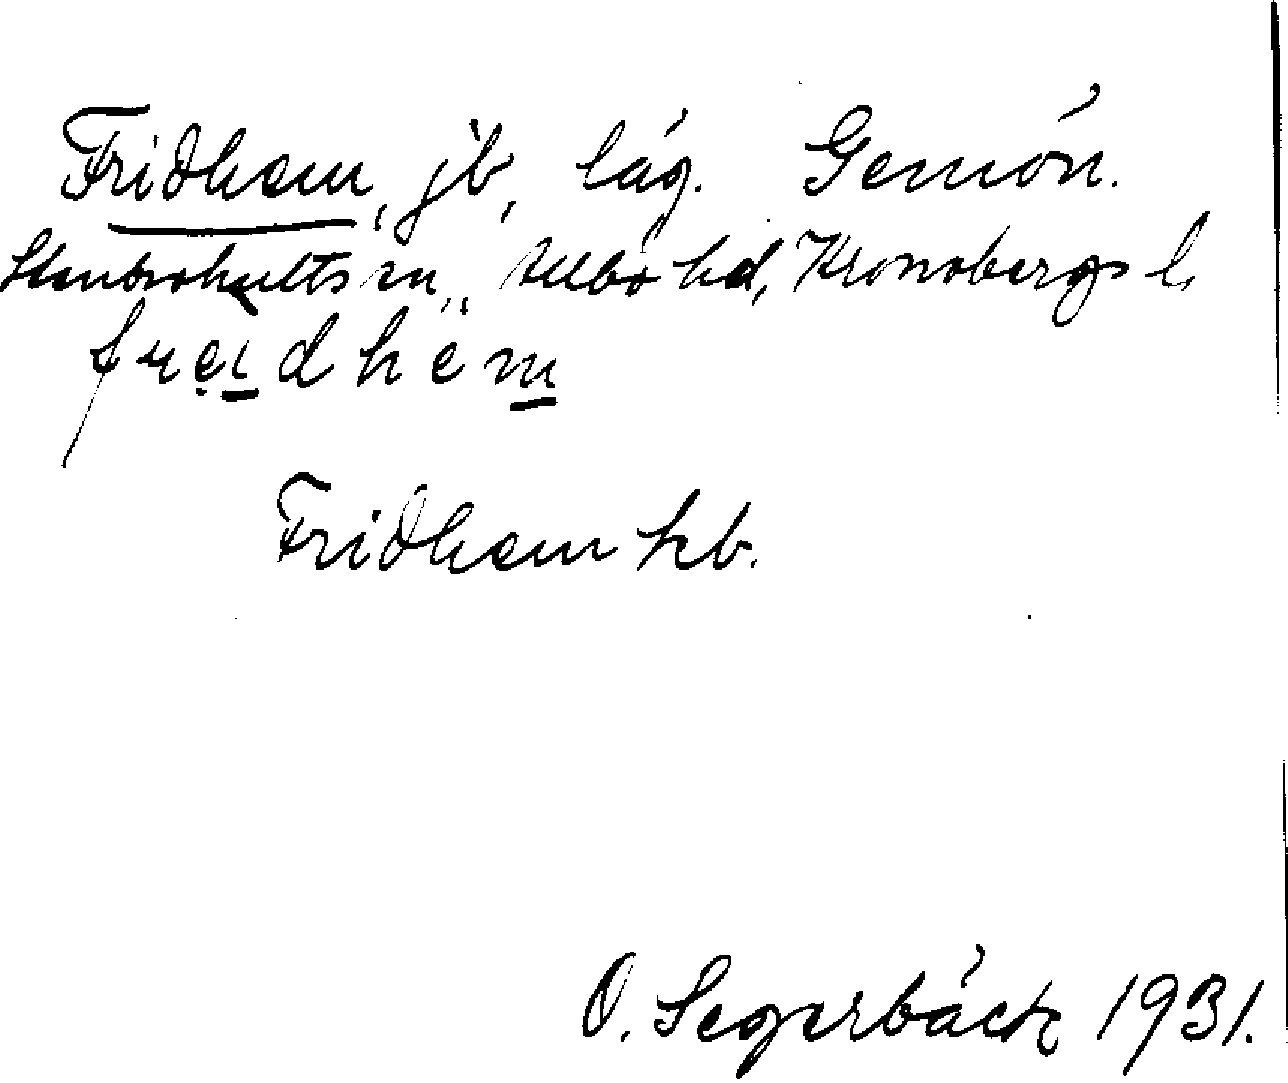 Fridhem, jb, läg. Gemön.
Stenbrohults sn, Allbo hd, Kronobergs l.
freidhem
Fridhem hb.
O. Segerbäck 1931.